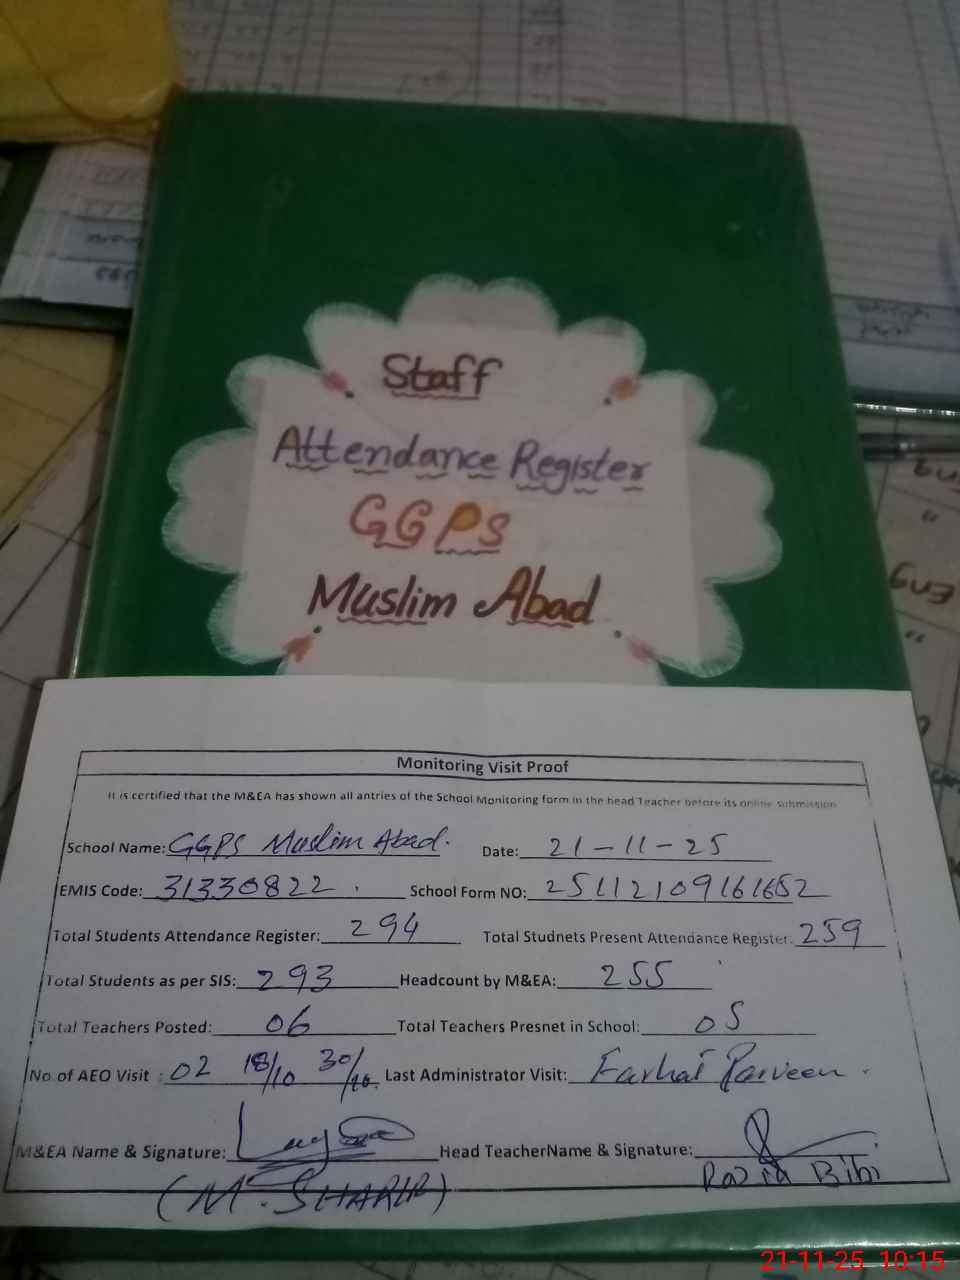 Staff
Attendance Register
GGPS
Muslim Abad
Monitoring Visit Proof
It is certified that the M&EA has shown all antries of the School Monitoring form in the head Teacher before its online submission
School Name: GGPS Muslim Abad. Date: 21-11-25
EMIS Code: 31330822. School Form NO: 25112109161652
Total Students Attendance Register: 294 Total Studnets Present Attendance Register: 259
Total Students as per SIS: 293 Headcount by M&EA: 255
Total Teachers Posted: 06 Total Teachers Presnet in School: 05
No of AEO Visit : 02 18/10 30/10 Last Administrator Visit: Farhat Parveen.
M&EA Name & Signature: Head TeacherName & Signature:
(M. SHARIF) Razia Bibi
21-11-25 10:15